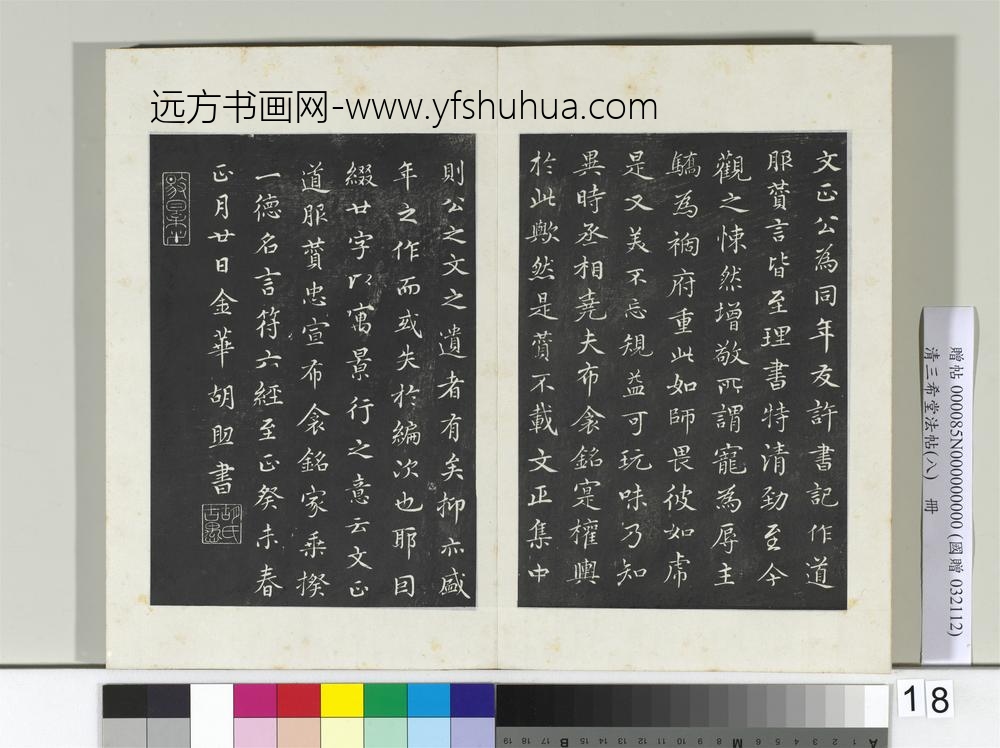 远方书画网-www.yfshuhua.com
文正公為同年友許書記作道
服賛言皆至理書特清勁至今
觀之悚然增敬所謂寵為辱主
驕為禍府重此如師畏彼如虎
是又美不忘規益可玩味乃知
異時丞相堯夫布衾銘寔權輿
於此歟然是賛不載文正集中
則公之文之遺者有矣抑亦盛
年之作而或失於編次也耶因
綴廿字以寓景行之意云文正
道服賛忠宣布衾銘家乗揆
一德名言符六經至正癸未春
正月廿日金華胡助書
胡氏古愚
贈帖 000085N000000000 (國贈 032112)
清三希堂法帖(八) 冊
18